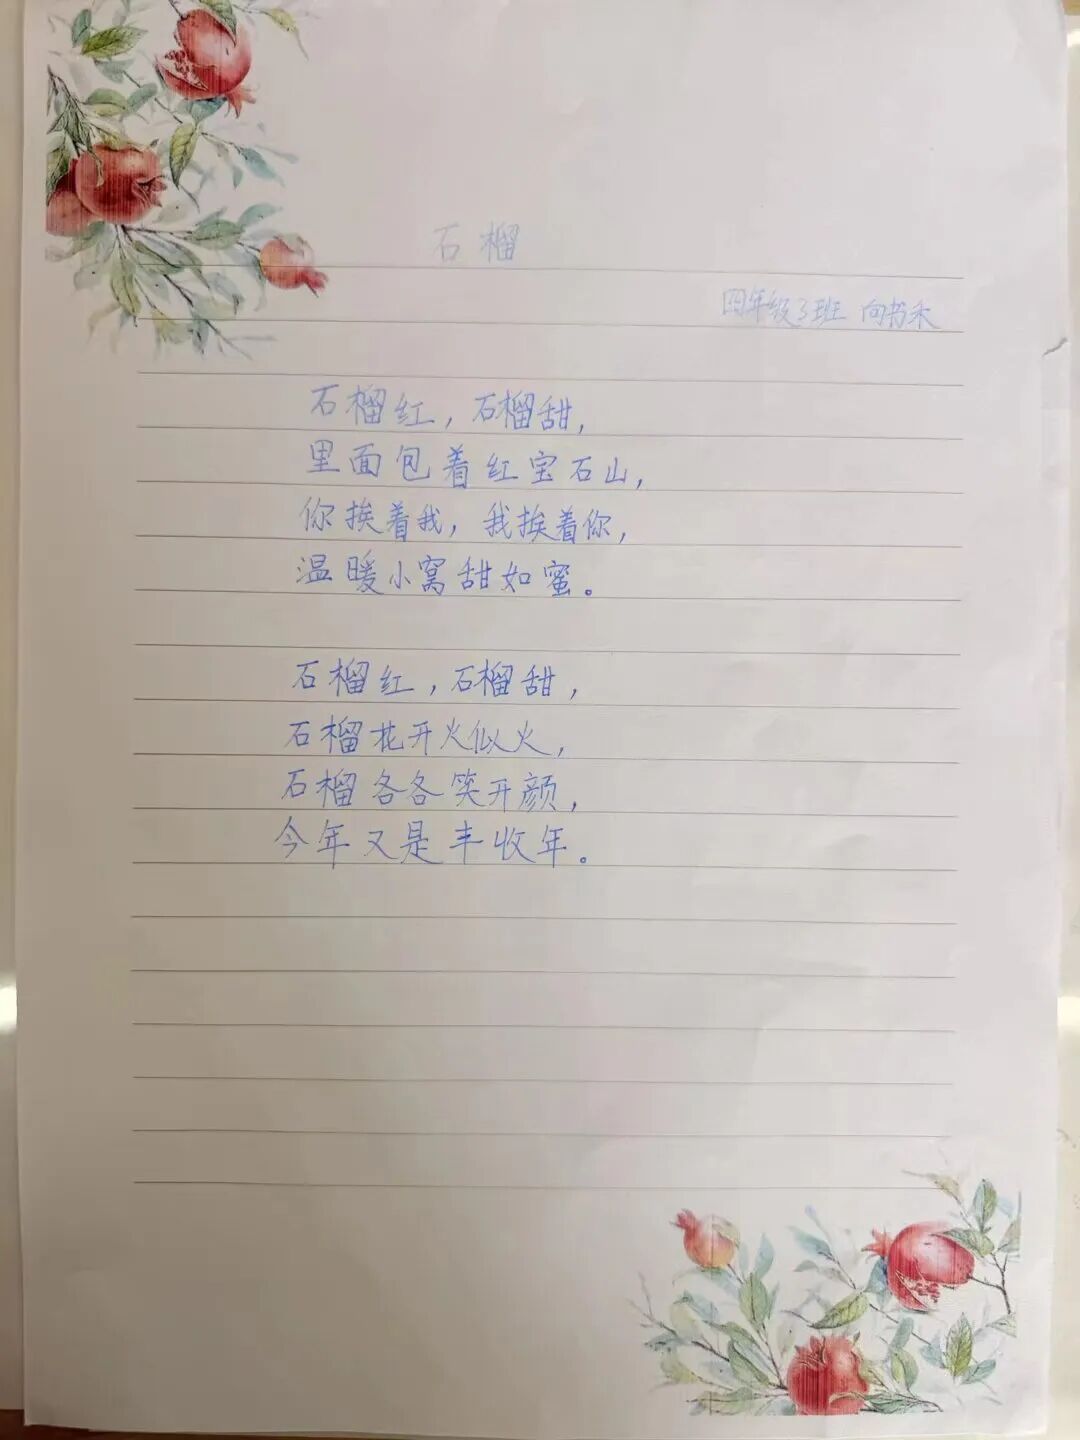 石榴
四年级3班 向书禾
石榴红，石榴甜，
里面包着红宝石山，
你挨着我，我挨着你，
温暖小窝甜如蜜。
石榴红，石榴甜，
石榴花开火似火，
石榴各各笑开颜，
今年又是丰收年。